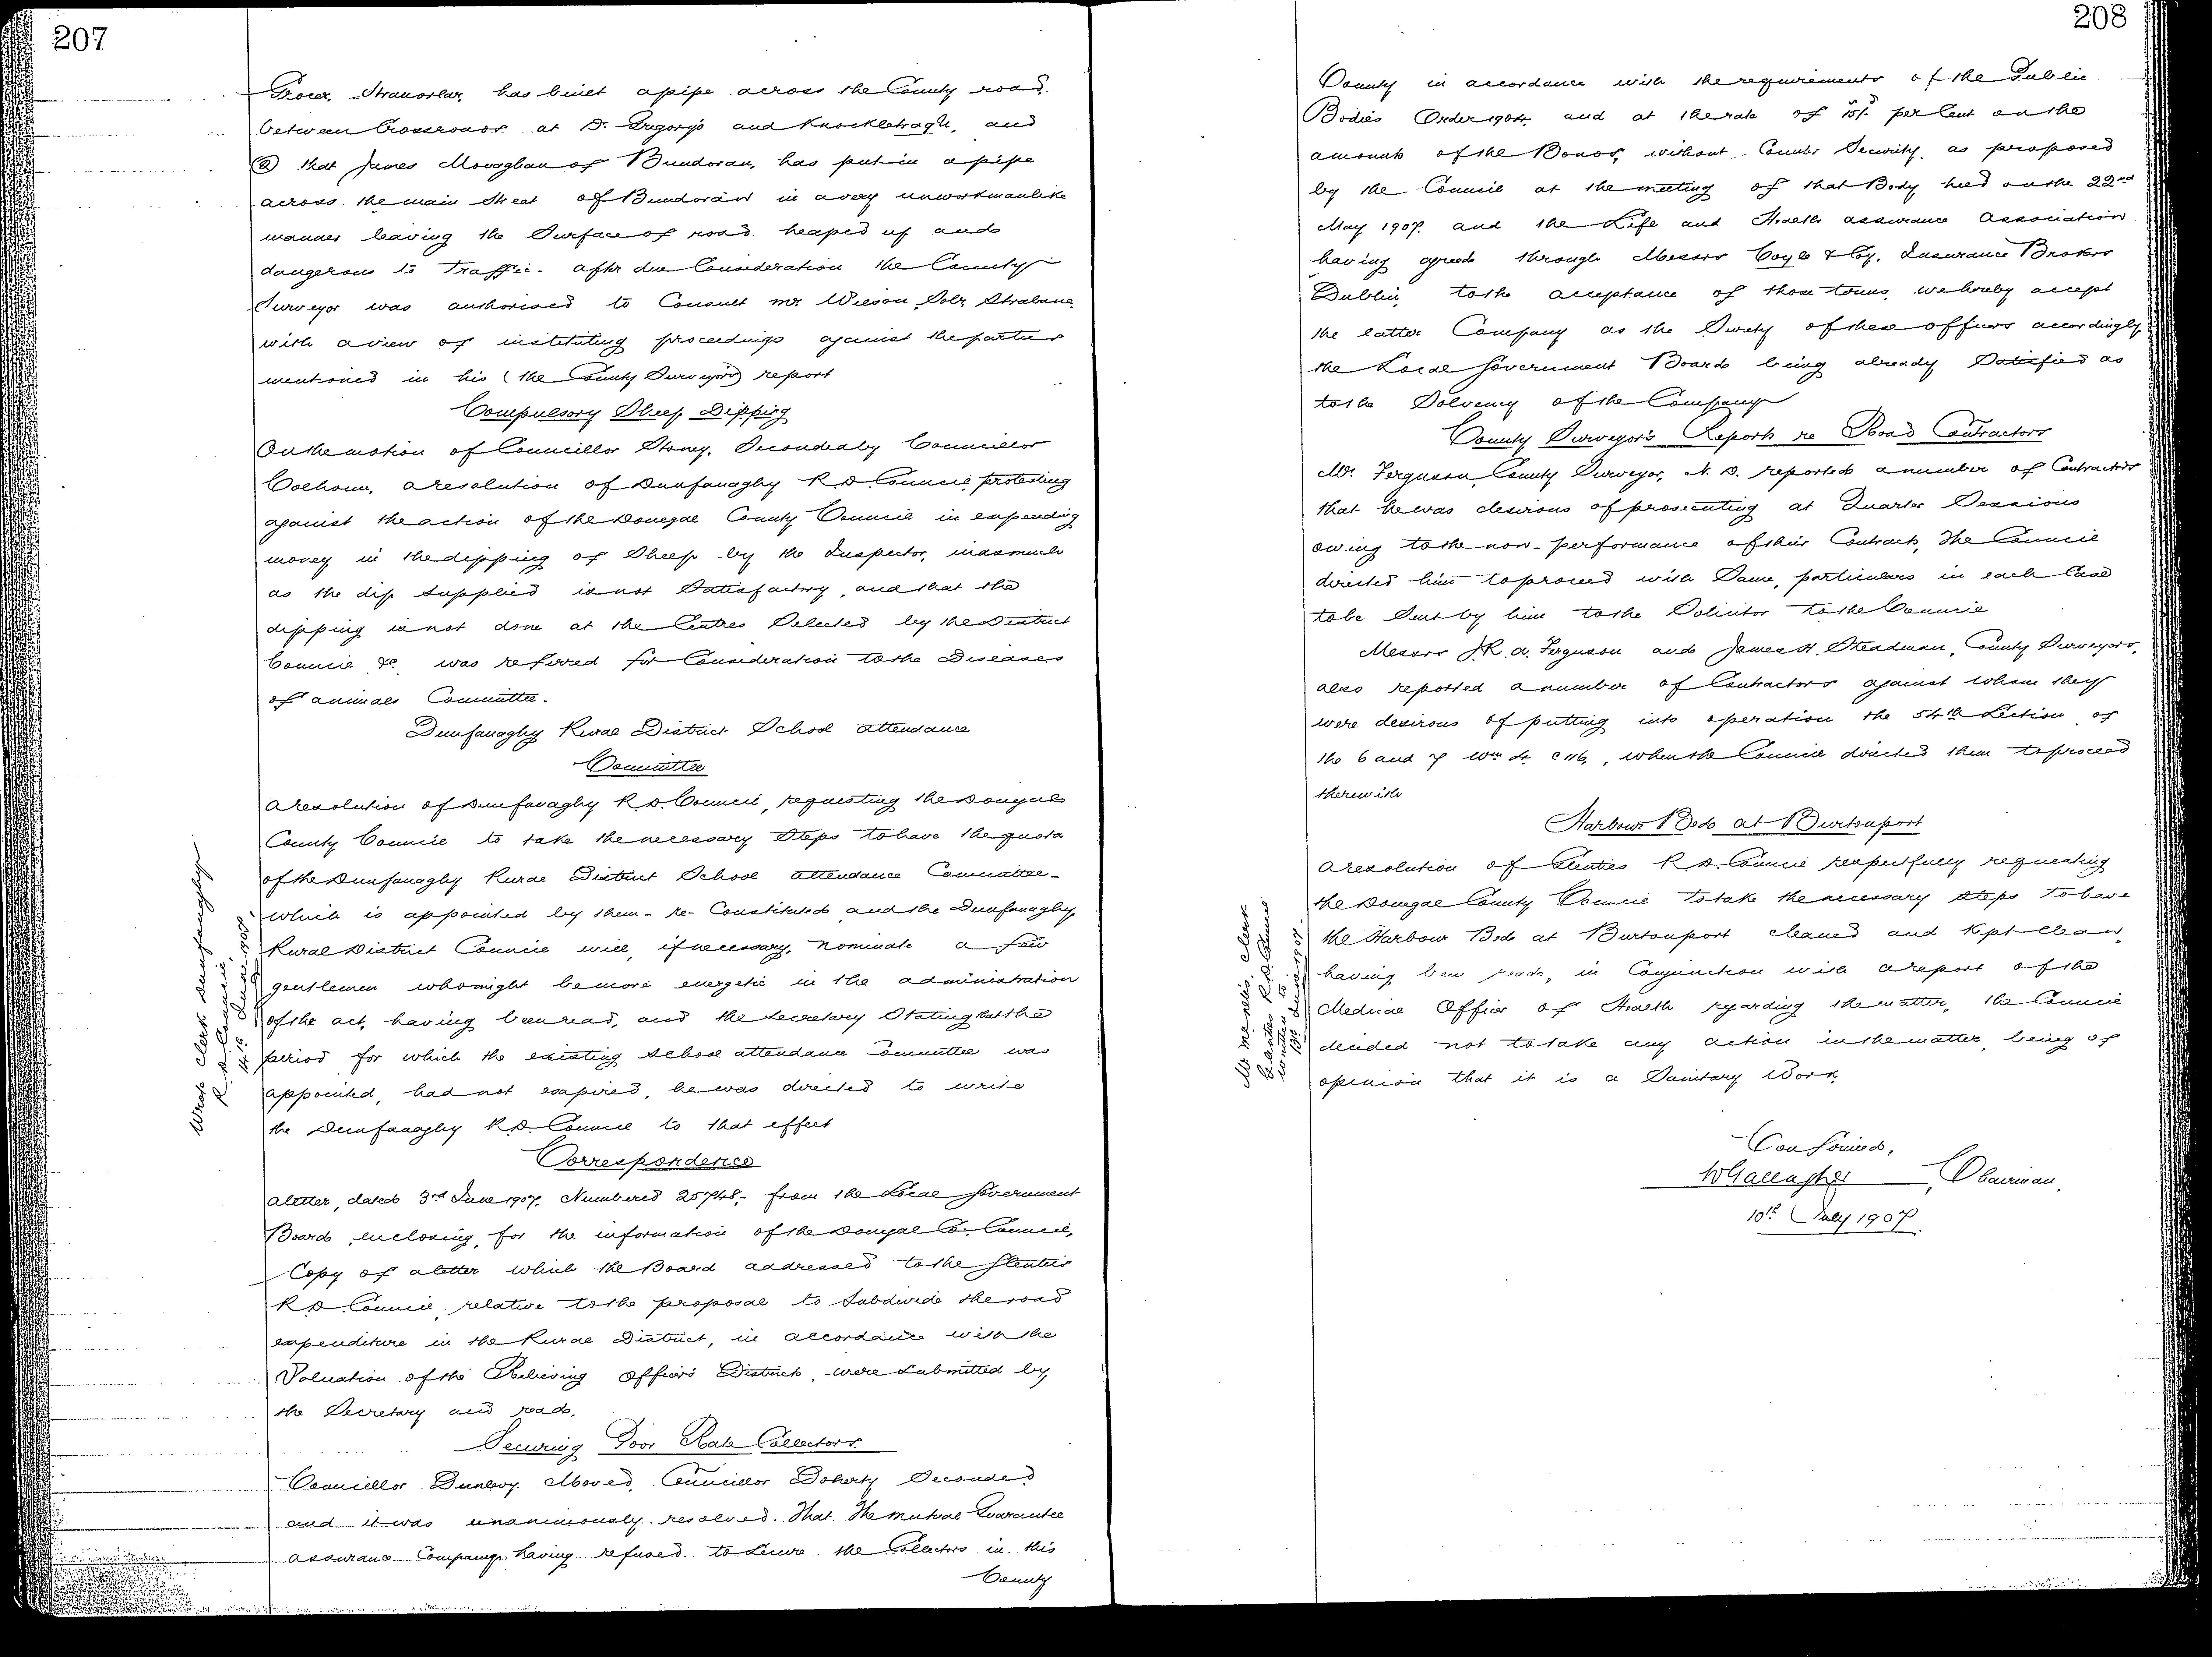 207
Grocer, Stranorlar, has built a pipe across the County road
between Crossroads at D. Gregory's and Knockletragh, and
(2) that James Monaghan of Bundoran, has put in a pipe
across the main Street of Bundoran in a very unworkmanlike
manner leaving the Surface of road heaped up and
dangerous to Traffic. After due Consideration the County
Surveyor was authorised to Consult Mr Wilson, Solr, Strabane
with a view of instituting proceedings against the parties
mentioned in his (the County Surveyors) report
Compulsory Sheep Dipping
On the motion of Councillor Stoney, Seconded by Councillor
Colhoun, a resolution of Dunfanaghy R.D. Council, protesting
against the action of the Donegal County Council in expending
money in the dipping of Sheep by the Inspector, inasmuch
as the dip supplied is not Satisfactory, and that the
dipping is not done at the Centres Selected by the District
Council &c was referred for Consideration to the Diseases
of animals Committee.
Dunfanaghy Rural District School attendance
Committee
A resolution of Dunfanaghy R.D. Council, requesting the Donegal
County Council to take the necessary Steps to have the quota
of the Dunfanaghy Rural District School attendance Committee -
which is appointed by them - re-Constituted and the Dunfanaghy
Rural District Council will, if necessary, nominate a few
gentlemen who might be more energetic in the administration
of the act, having been read, and the Secretary Stating that the
period for which the existing School attendance Committee was
appointed, had not expired, he was directed to write
the Dunfanaghy R.D. Council to that effect
Wrote Clerk Dunfanaghy
R.D. Council,
14th June 1907.
Correspondence
A letter, dated 3rd June 1907, Numbered 25748, from the Local Government
Board, enclosing, for the information of the Donegal Co. Council,
Copy of a letter which the Board addressed to the Glenties
R.D. Council, relative to the proposal to Subdivide the road
expenditure in the Rural District, in accordance with the
Valuation of the Relieving Officers Districts, were Submitted by
the Secretary and read.
Securing Poor Rate Collectors.
Councillor Dunlevy Moved, Councillor Doherty Seconded
and it was unanimously resolved. That the Mutual Guarantee
Assurance Company having refused to Secure the Collectors in this
County
208
County in accordance with the requirements of the Public
Bodies Order 1904, and at the rate of 15/- per Cent on the
amount of the Bonds, without Counter Security, as proposed
by the Council at the meeting of that Body held on the 22nd
May 1907, and the Life and Health assurance association
having agreed through Messrs Coyle & Coy, Insurance Brokers
Dublin, to the acceptance of those terms, we hereby accept
the latter Company as the Surety of these officers accordingly
the Local Government Board being already Satisfied as
to the Solvency of the Company
County Surveyor's Reports re Road Contractors
Mr. Ferguson, County Surveyor, N.D. reported a number of Contractors
that he was desirous of prosecuting at Quarter Sessions
owing to the non-performance of their Contracts, The Council
directed him to proceed with Same, particulars in each Case
to be Sent by him to the Solicitor to the Council
Messrs J.R.A. Ferguson and James H. Steadman, County Surveyors,
also reported a number of Contractors against whom they
were desirous of putting into operation the 54th Section of
the 6 and 7 Wm 4 c 116, when the Council directed them to proceed
therewith
Harbour Bed at Burtonport
A resolution of Glenties R.D. Council respectfully requesting
the Donegal County Council to take the necessary Steps to have
the Harbour Bed at Burtonport cleaned and kept clean,
having been read, in Conjunction with a report of the
Medical Officer of Health regarding the matter, the Council
decided not to take any action in the matter, being of
opinion that it is a Sanitary Work.
Clerk
Glenties R.D. Council
written to
13th June 1907.
Confirmed,
W Gallagher Chairman,
10th July 1907.